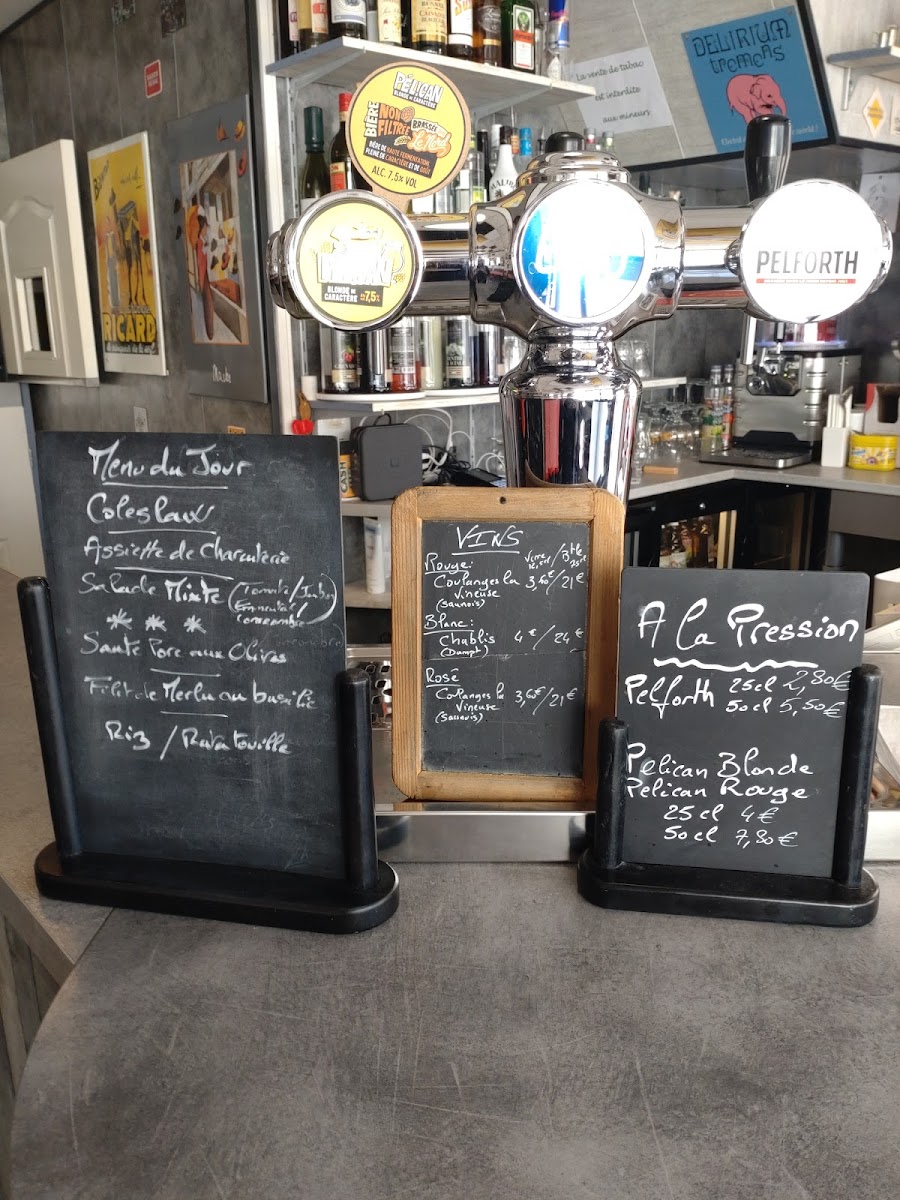 La vente de tabac
est interdite
aux mineurs
DELIRIUM
tremens
PÉLICAN
BLONDE DE CARACTÈRE
BIÈRE
NON
FILTRÉE
BRASSÉE
BIÈRE DE HAUTE FERMENTATION,
PLEINE DE CARACTÈRE ET DE GOÛT
ALC. 7,5% VOL
BLONDE DE
CARACTÈRE 7,5%
PELFORTH
RICARD
Menu du Jour
Coleslaw
Assiette de Charcuterie
Salade Mixte (Tomate/Jambon
Emmental/
concombre)
* * *
Sauté Porc aux Olives
Filet de Merlu au basilic
Riz / Ratatouille
VINS
Rouge:
Coulanges la 3,60€/21€
Vineuse
Blanc:
Chablis 4€/24€
(Dampt)
Rosé
Coulanges la 3,60€/21€
Vineuse
A la Pression
Pelforth 25cl 2,80€
50cl 5,50€
Pelican Blonde
Pelican Rouge
25cl 4€
50cl 7,80€